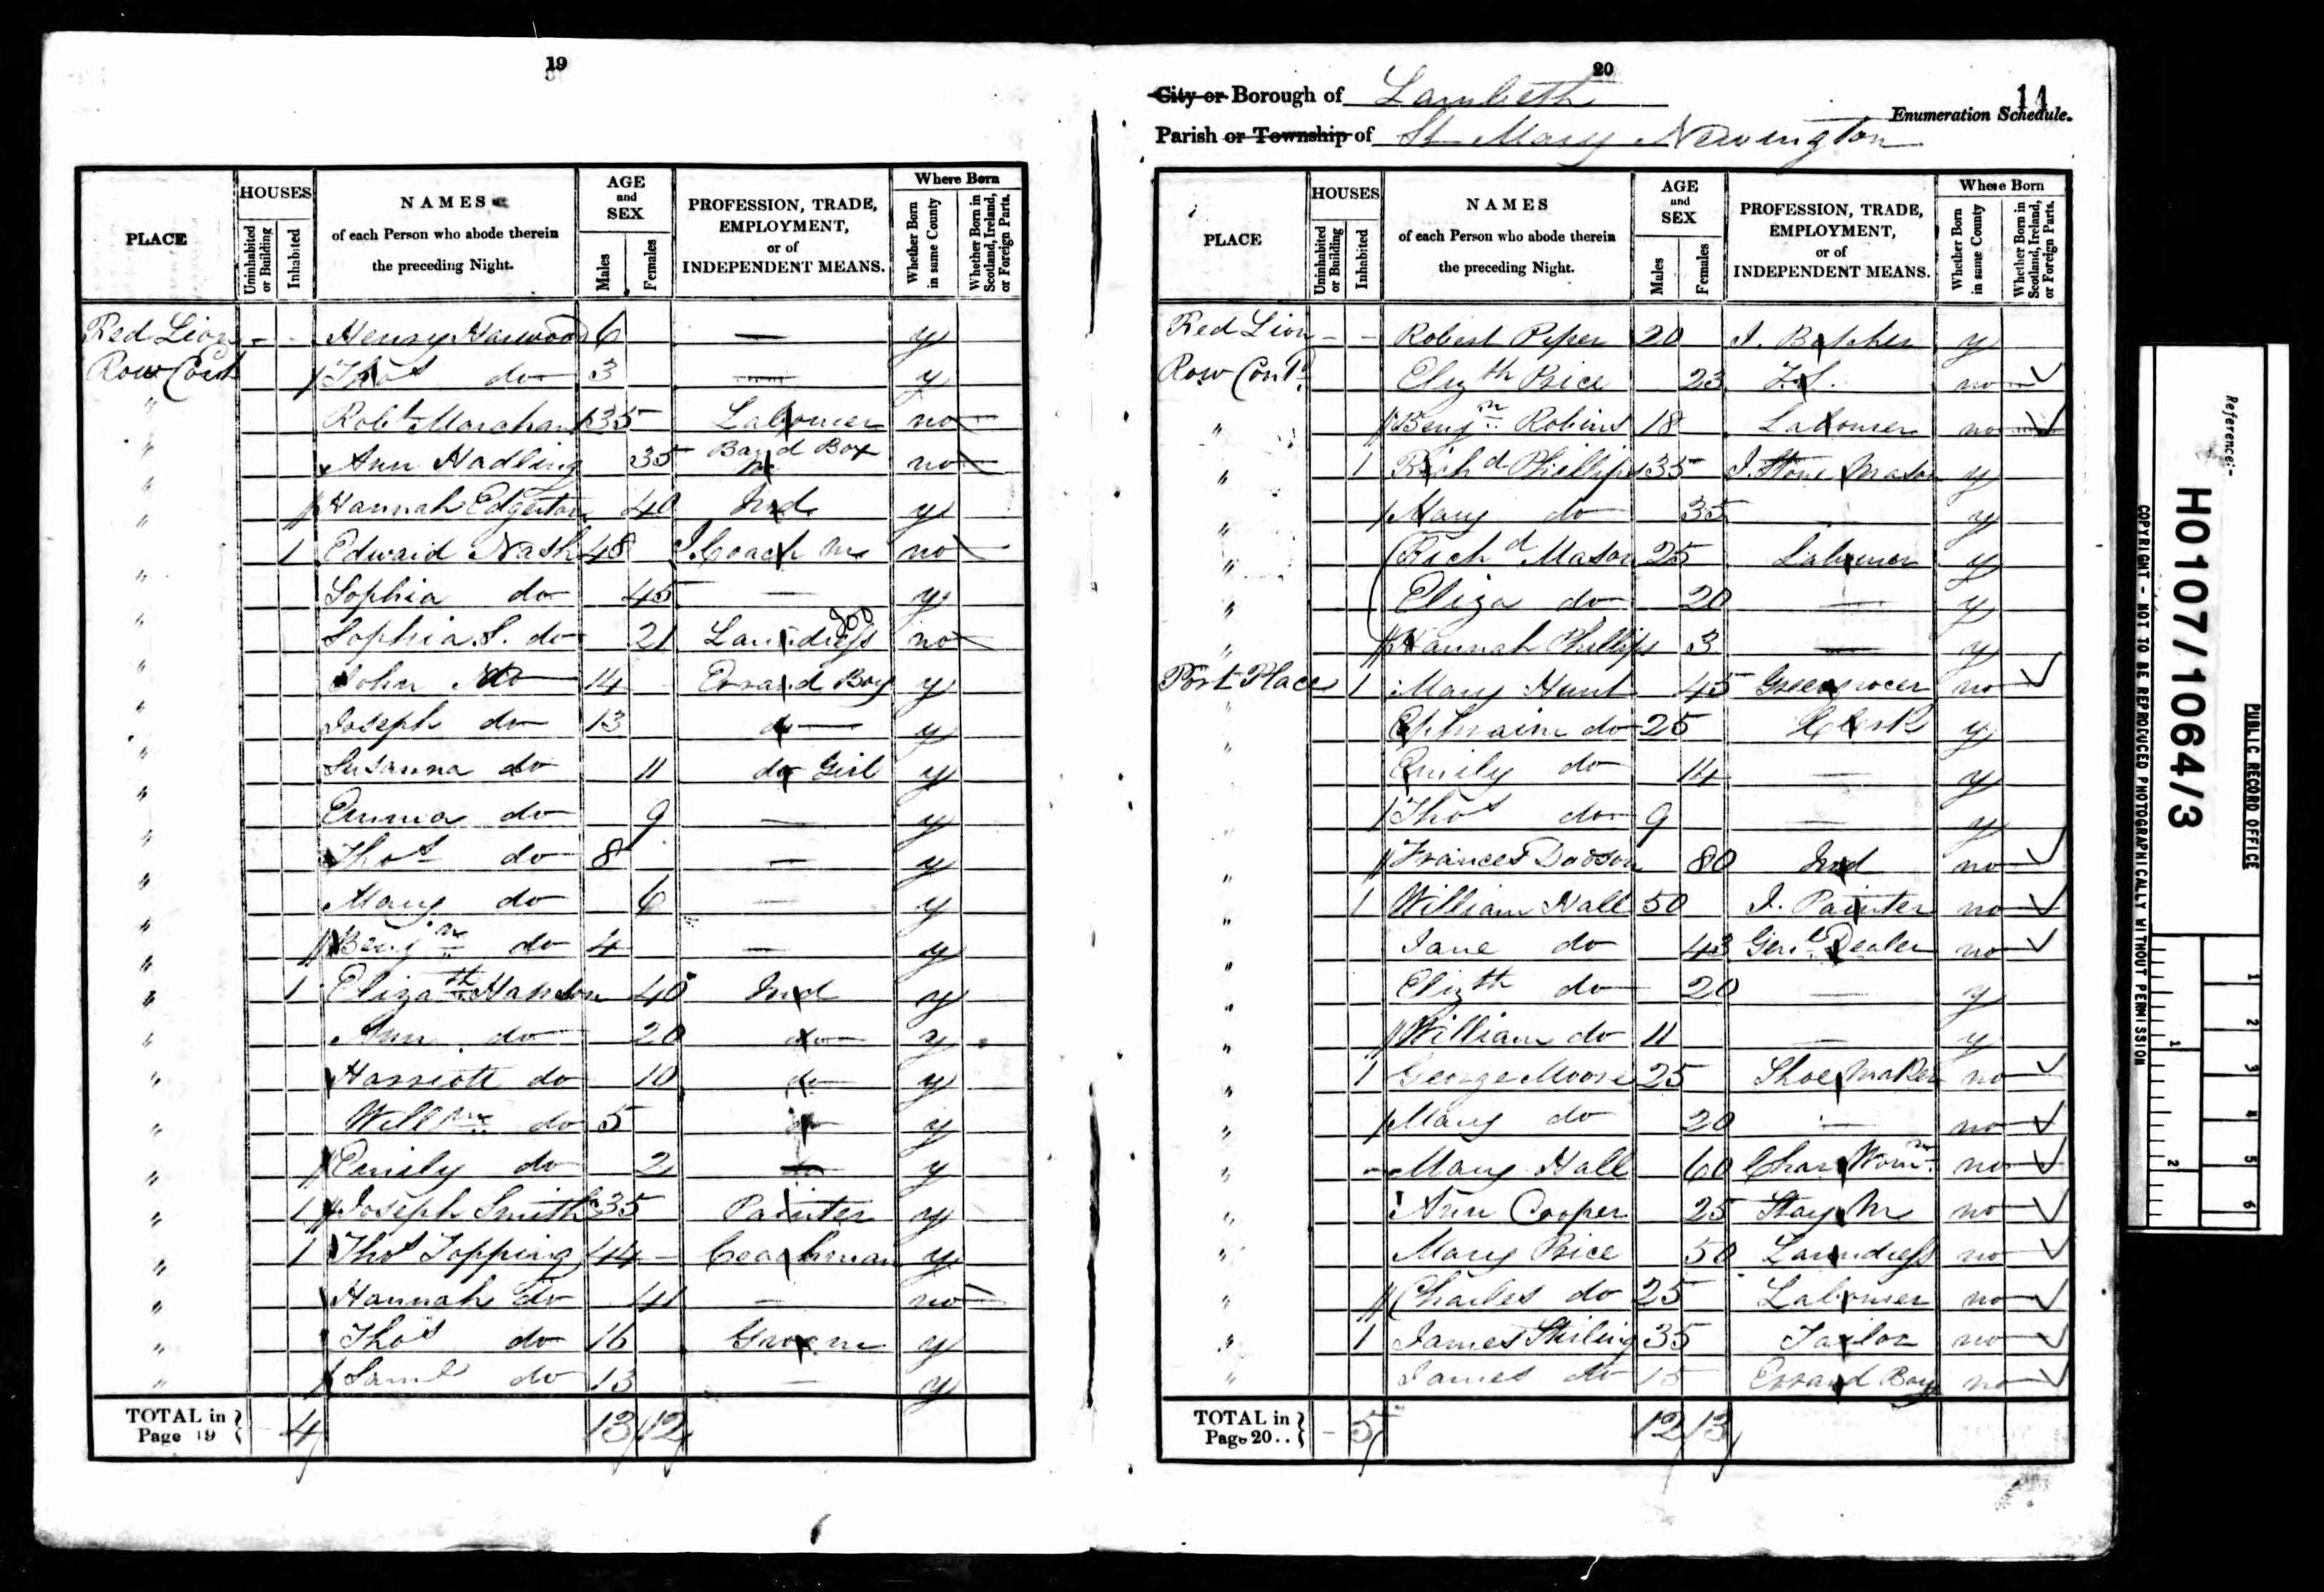 19
PLACE
HOUSES
Uninhabited or Building
Inhabited
NAMES
of each Person who abode therein
the preceding Night.
AGE
and
SEX
Males
Females
PROFESSION, TRADE,
EMPLOYMENT,
or of
INDEPENDENT MEANS.
Where Born
Whether Born in same County
Whether Born in Scotland, Ireland, or Foreign Parts.
Red Lion - - Henry 6 — y
Row Thos do 3 — y
" Robt 35 Labourer no
" Ann Hadling 35 Band Box m no
" Hannah Edgerton 40 Ind y
1 Edward Nash 48 J. Coach m no
" Sophia do 45 — y
" Sophia S. do 21 Laundress no
" John do 14 Errand Boy y
" Joseph do 13 do y
" Susanna do 11 do Girl y
" Emma do 9 — y
" Thos do 8 — y
" Mary do 6 — y
" Benjn do 4 — y
" 1 Elizath 40 Ind y
" Ann do 20 do y
" Harriott do 10 do y
" Willm do 5 do y
" Emily do 2 do y
" 1 Joseph Smith 35 Painter y
" 1 Thos Topping 44 Coachman y
" Hannah do 41 — no
" Thos do 16 y
" Saml do 13 — y
TOTAL in
Page 19
- 4 13 12
20
City or Borough of Lambeth
Parish or Township of St Mary Newington
11
Enumeration Schedule.
PLACE
HOUSES
Uninhabited or Building
Inhabited
NAMES
of each Person who abode therein
the preceding Night.
AGE
and
SEX
Males
Females
PROFESSION, TRADE,
EMPLOYMENT,
or of
INDEPENDENT MEANS.
Where Born
Whether Born in same County
Whether Born in Scotland, Ireland, or Foreign Parts.
Red Lion - - Robert Piper 20 y
Row Contd Elizth Price 23 F.S. no
" Benjn Robins 18 Labourer no
" 1 Richd Phillips 35 J. Stone Mason y
" Mary do 35 y
" Richd Mason 25 Labourer y
" Eliza do 20 — y
" Hannah Phillips 3 — y
Port Place 1 Mary Hunt 45 Greengrocer no
" Ephraim do 25 Clerk y
" Emily do 14 — y
" Thos do 9 — y
" Frances Dodson 80 Ind no
" 1 William Hall 50 J. Painter no
" Jane do 43 Genl Dealer no
" Elizth do 20 — y
" William do 11 — y
" 1 George Moore 25 Shoe Maker no
" Mary do 20 — no
" - Mary Hall 60 Char Womn no
" Ann Cooper 25 Stay M no
" Mary Price 50 Laundress no
" Charles do 25 Labourer no
" 1 James 35 Tailor no
" James do 15 Errand Boy no
TOTAL in
Page 20..
- 5 12 13
Reference:-
HO107/1064/3
PUBLIC RECORD OFFICE
COPYRIGHT - NOT TO BE REPRODUCED PHOTOGRAPHICALLY WITHOUT PERMISSION
1 2 3 4 5 6
1 2